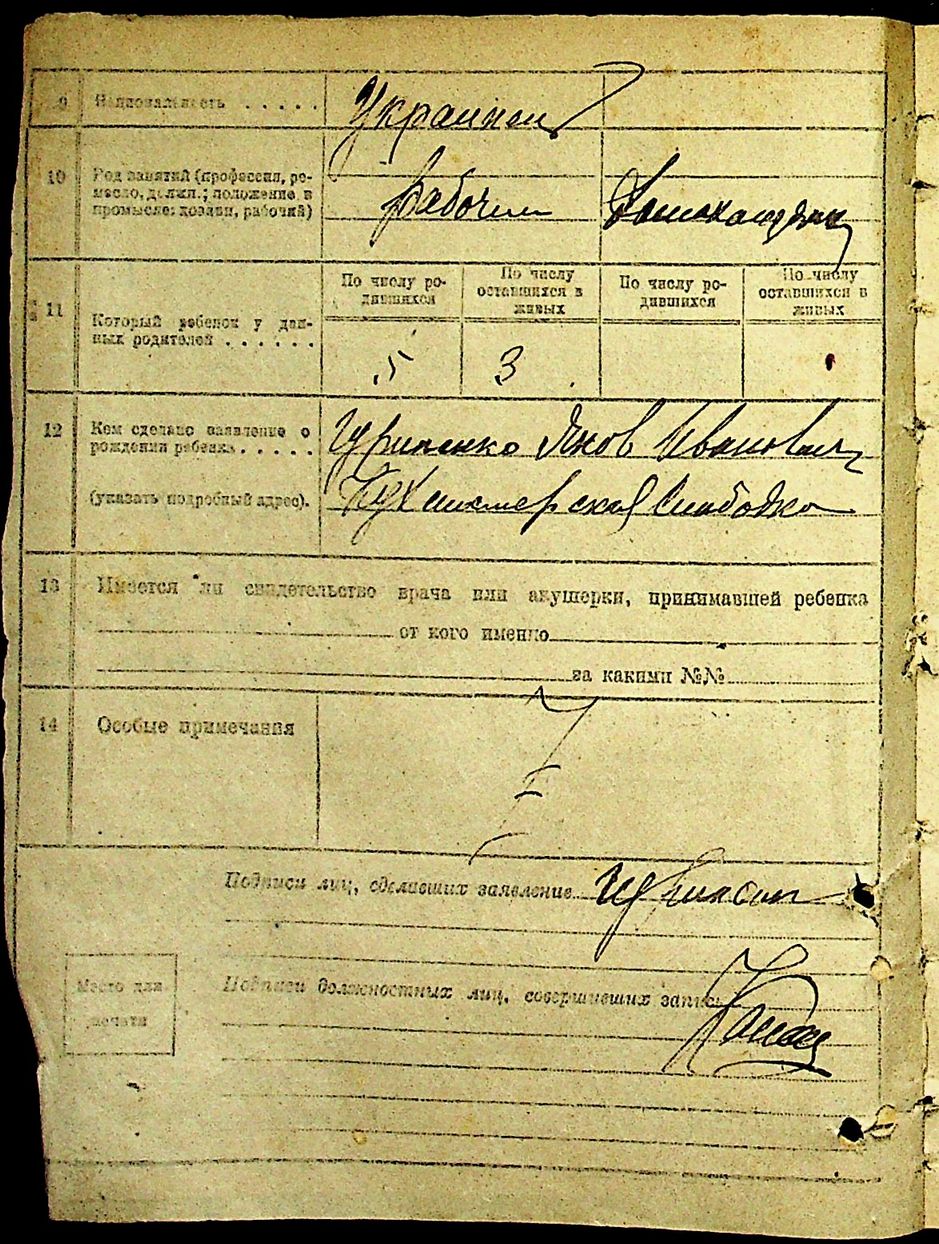 9 Национальность . . . . .
Украинец
10 Род занятий (профессия, ре-
месло, должн.; положение в
промысле: хозяин, рабочий)
рабочий Домохозяйк
11 Который ребенок у дан-
ных родителей . . . . . .
По числу ро-
дившихся
По числу
оставшихся в
живых
По числу ро-
дившихся
По числу
оставшихся в
живых
5 3
12 Кем сделано заявление о
рождении ребенка . . . . .
(указать подробный адрес).
Яков Иванович
Слободка
13 Имеется ли свидетельство врача или акушерки, принимавшей ребенка
от кого именно
за какими №№
14 Особые примечания
Подписи лиц, сделавших заявление
Подписи должностных лиц, совершивших запись
Место для
печати